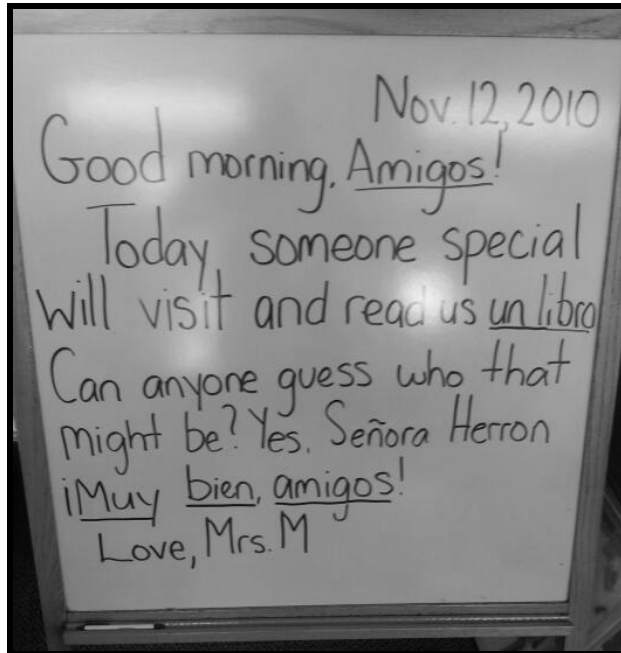 Nov. 12, 2010
Good morning, Amigos!
Today, someone special
will visit and read us un libro
Can anyone guess who that
might be? Yes, Señora Herron
¡Muy bien, amigos!
Love, Mrs. M